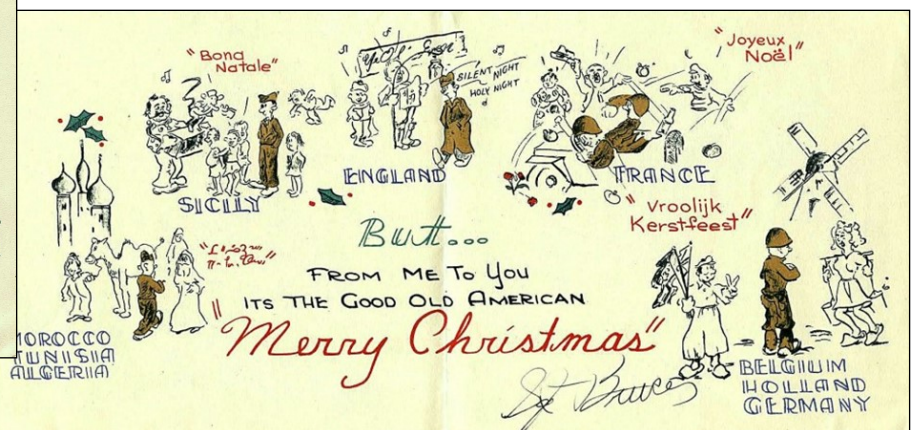 "Bona
Natale"
"Joyeux
Noël"
SILENT NIGHT
HOLY NIGHT
ENGLAND
FRANCE
SICILY
"Vroolijk
Kerstfeest"
But...
FROM ME To You
ITS THE GOOD OLD AMERICAN
"Merry Christmas"
MOROCCO
TUNISIA
ALGERIA
BELGIUM
HOLLAND
GERMANY
Sgt